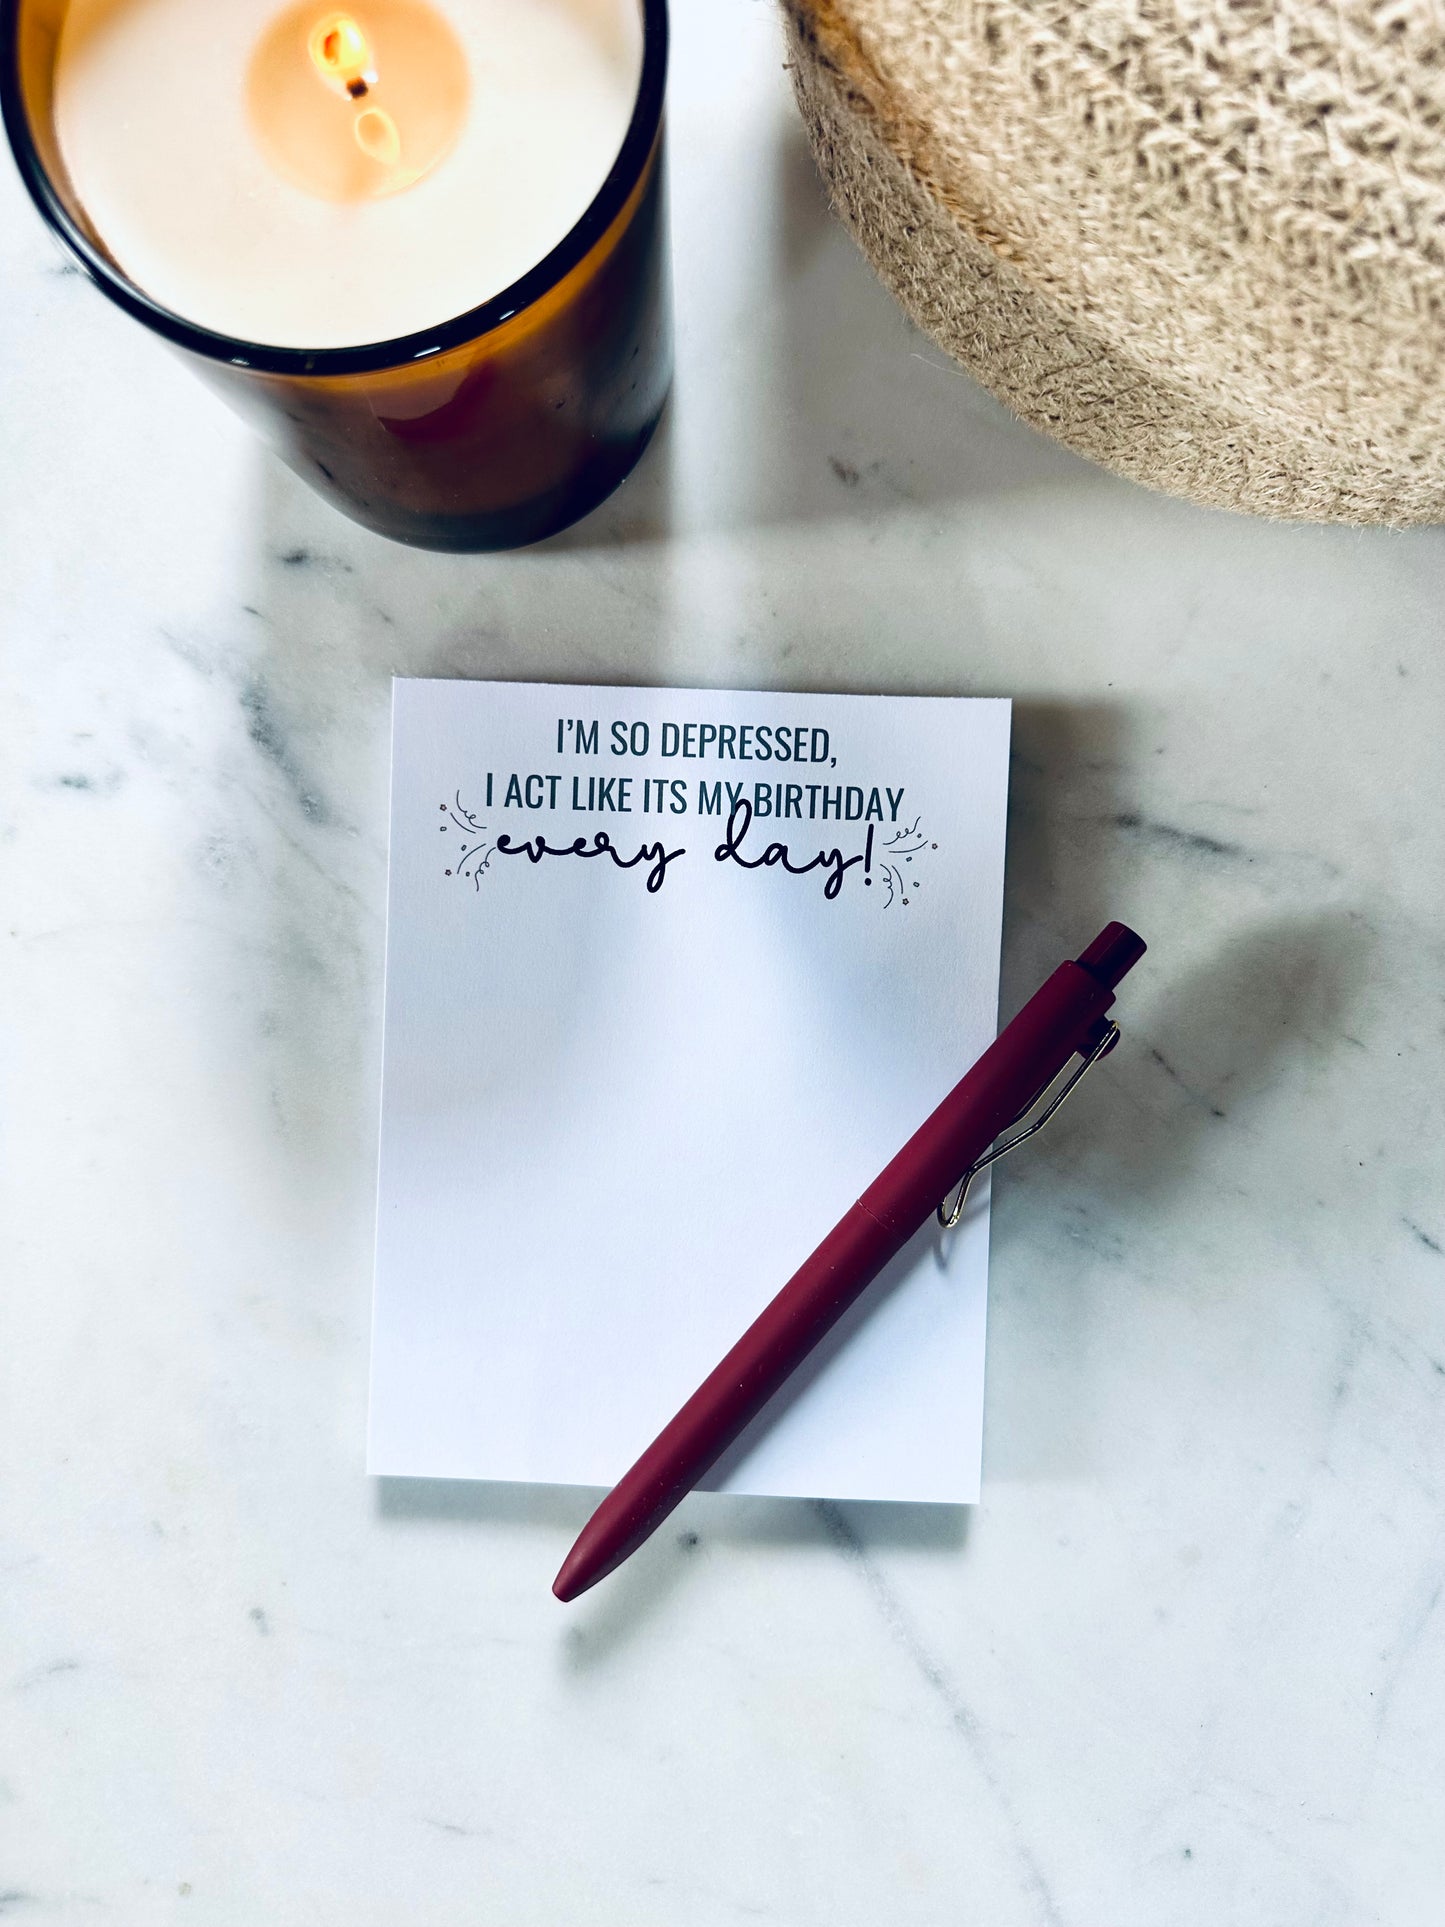 I'M SO DEPRESSED,
I ACT LIKE ITS MY BIRTHDAY
every day!